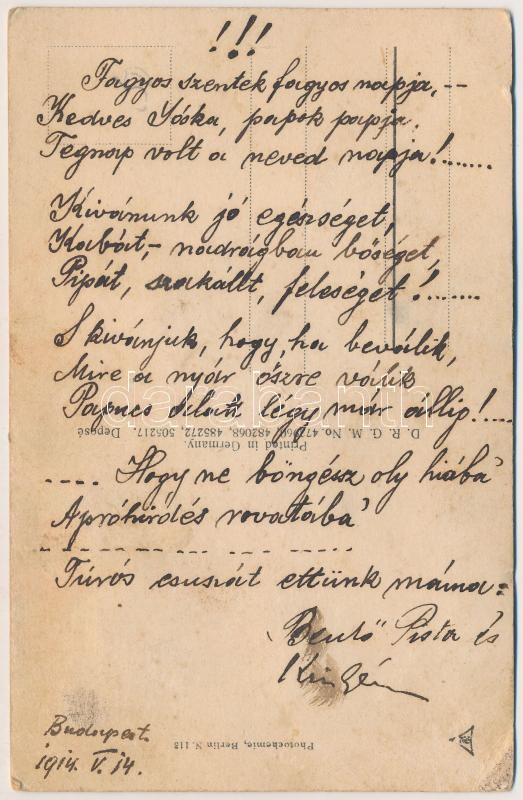 !!!
Fagyos szentek fagyos napja, --
Kedves Jóska, papok papja.
Tegnap volt a neved napja!.......
Kivánunk jó egészséget,
Kabát,- nadrágban bőséget,
Pipát, szakállt, feleséget!.......
S kivánjuk, hogy, ha beválik,
Mire a nyár őszre válik
Papucs alatt légy már állig!....
D. R. G. M. No 471960, 482068, 485272, 505217. Deposé
Printed in Germany.
.... Hogy ne böngéssz oly hiába
Apróhirdés rovatába
Túrós csuszát ettünk máma =
Pista és
Budapest.
1914. V. 14.
Photochemie, Berlin N. 113